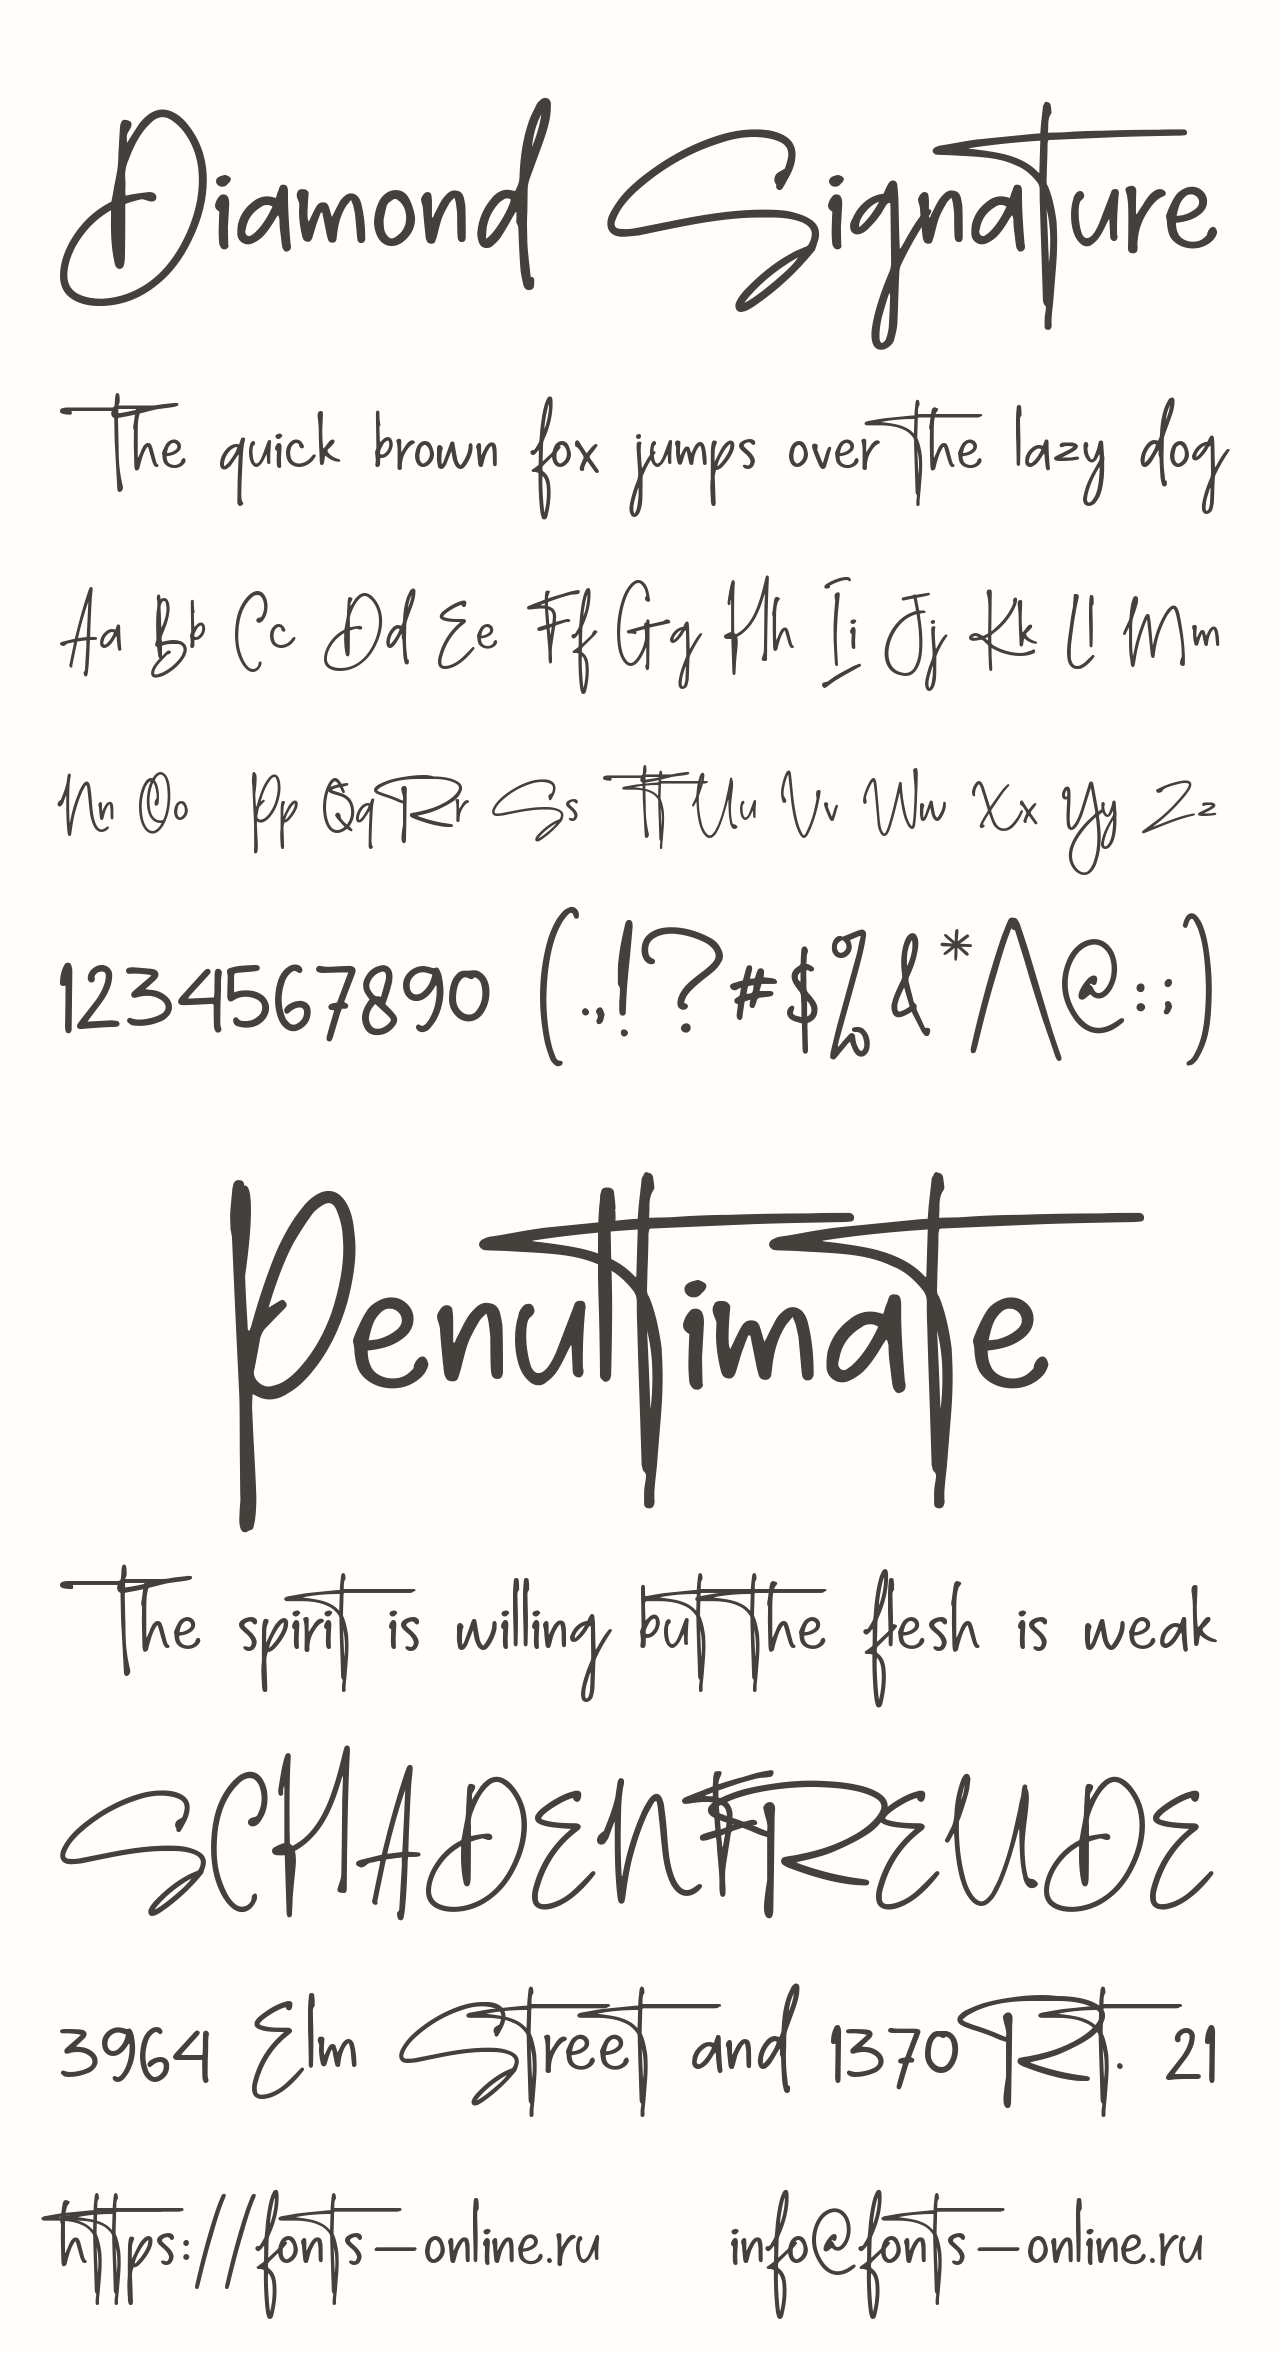 Diamond Signature
The quick brown fox jumps over the lazy dog
Aa Bb Cc Dd Ee Ff Gg Hh Ii Jj Kk Ll Mm
Nn Oo Pp Qq Rr Ss Tt Uu Vv Ww Xx Yy Zz
1234567890 (.,!?#$%&*^@:;)
Penultimate
The spirit is willing but the flesh is weak
SCHADENFREUDE
3964 Elm Street and 1370 Rt. 21
https://fonts-online.ru info@fonts-online.ru